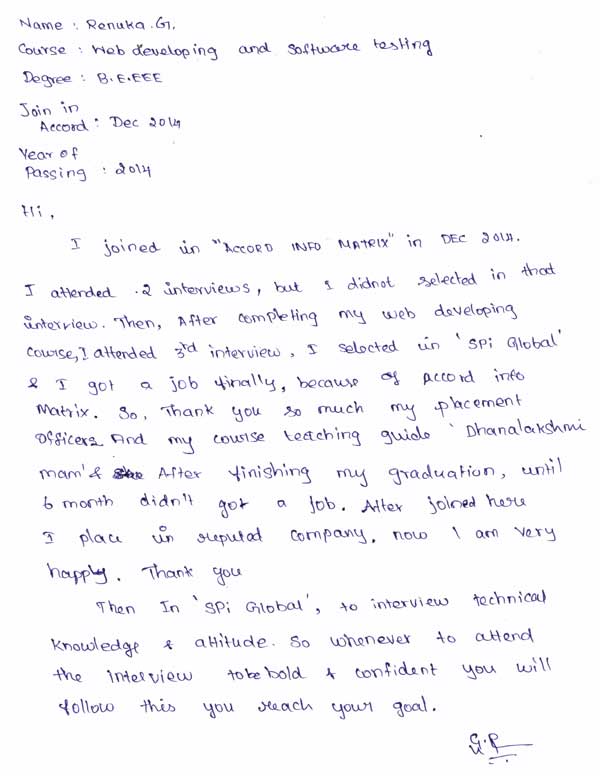 Name : Renuka.G.
Course : Web developing and software testing
Degree : B.E.EEE
Join in
Accord : Dec 2014
Year of
Passing : 2014
Hi,
I joined in "ACCORD INFO MATRIX" in DEC 2014.
I attended .2 interviews, but I didnot selected in that
interview. Then, After completing my web developing
course, I attended 3rd interview, I selected in 'SPi Global'
& I got a job finally, because of Accord info
Matrix. So, Thank you so much my placement
officers And my course teaching guide 'Dhanalakshmi
mam' & After finishing my graduation, until
6 month didn't got a job. After joined here
I place in reputed company, now I am very
happy. Thank you
Then In 'SPi Global', to interview technical
knowledge & attitude. So whenever to attend
the interview tobe bold & confident you will
follow this you reach your goal.
G.R